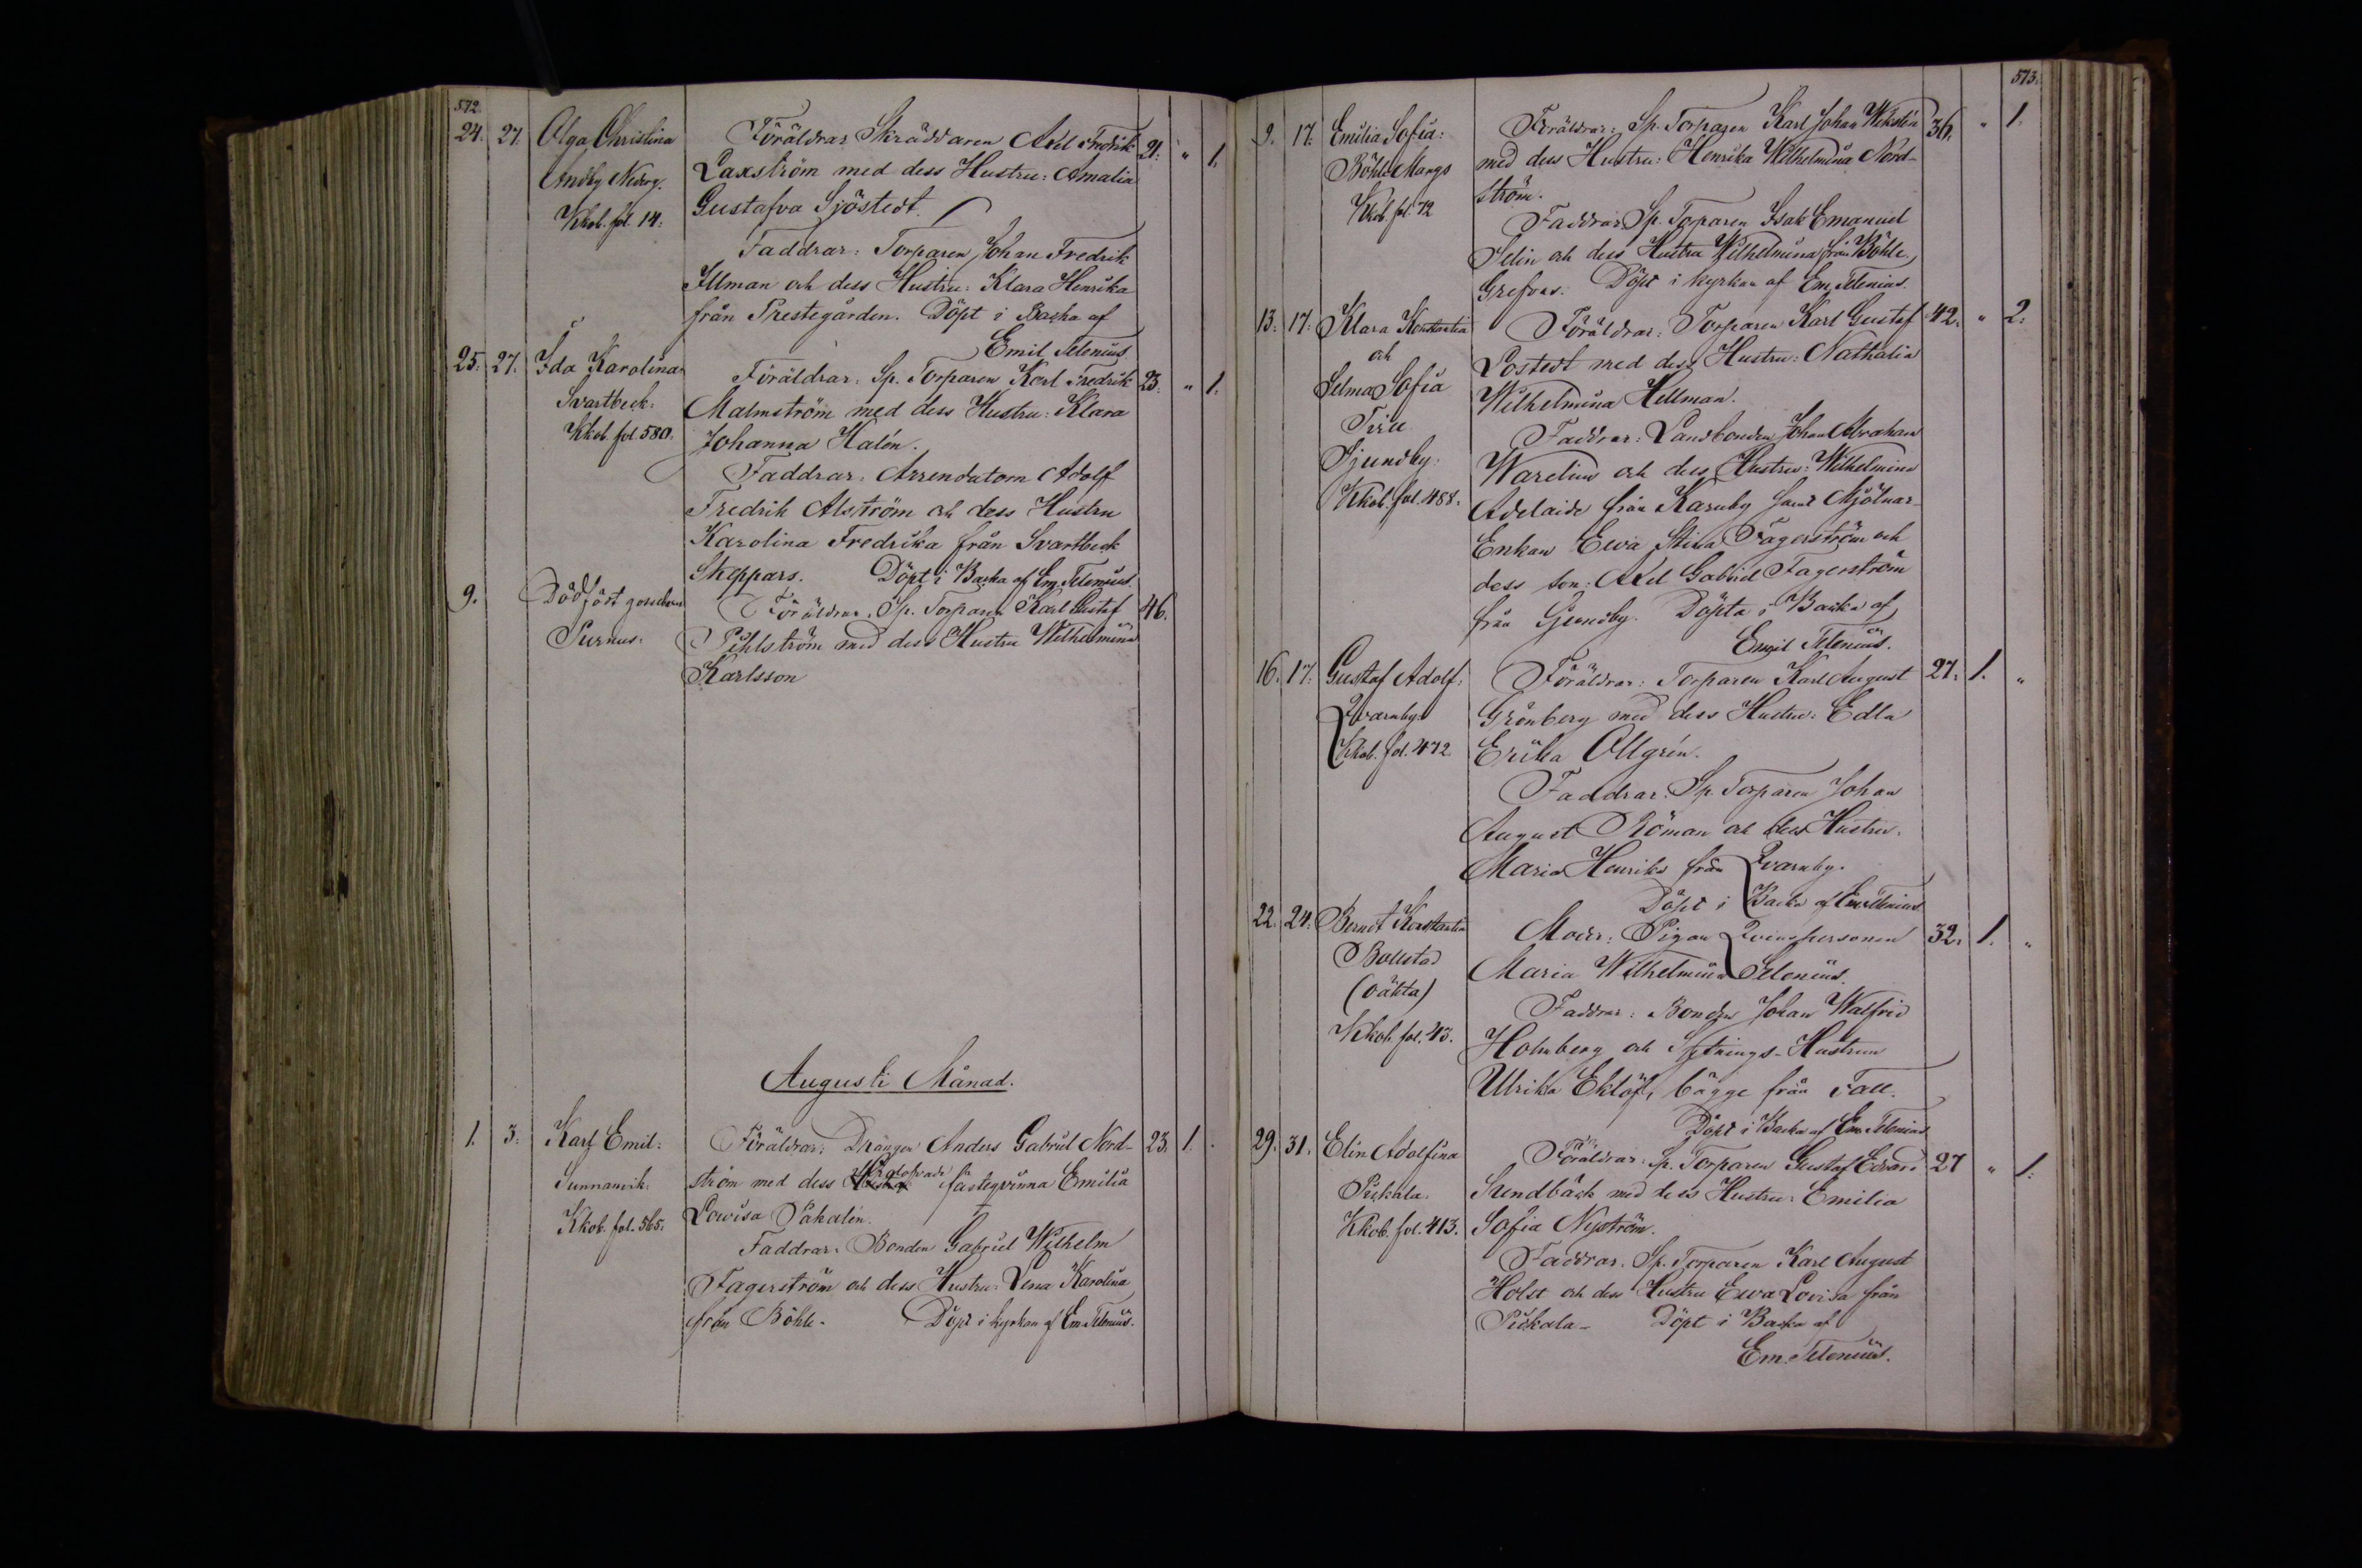 572.
24. 27. Olga Christina Föräldrar Skräddaren Axel Fredrik 21. " 1.
Andby Neorg. Laxström med dess Hustru: Amalia
Kkob. fol. 14. Gustafva Sjöstedt.
Faddrar: Torparen Johan Fredrik
Illman och dess Hustru: Klara Henrika
från Prestegården. Döpt i Backa af
Emil Telenius
25. 27. Ida Karolina Föräldrar: Sp. Torparen Karl Fredrik 23. " 1.
Svartbeck: Malmström med dess Hustru: Klara
Kkob. fol. 580. Johanna Halén.
Faddrar: Arrendatorn Adolf
Fredrik Alström och dess Hustru
Karolina Fredrika från Svartbeck
Skeppars. Döpt i Backa af Em. Telenius.
9. Dödfödt gossebarn Föräldrar: Sp. Torparen Karl Gustaf 46.
Purnus: Pihlström med dess Hustru Wilhelmina
Karlsson
Augusti Månad.
1. 3. Karl Emil: Föräldrar: Drängen Anders Gabriel Nord- 23. 1.
Sunnanvik: ström med dess fästeqvinna Emilia
Kkob. fol. 565. Lowisa Säkalén.
Faddrar: Bonden Gabriel Wilhelm
Fagerström och dess Hustru: Lena Karolina
från Böhle. Döpt i kyrkan af Em. Telenius.
573.
9. 17. Emilia Sofia: Föräldrar: Sp. Torparen Karl Johan Wikstén 36. " 1.
Böhle Mangs med dess Hustru: Henrika Wilhelmina Nord-
Kkob. fol. 72 ström.
Faddrar: Sp. Torparen Isak Emanuel
Selin och dess Hustru Wilhelmina från Böhle
Grefvas. Döpt i kyrkan af Em. Telenius.
13. 17. Klara Konstantia Föräldrar: Torparen Karl Gustaf 42. " 2.
och Lostedt med dess Hustru: Nathalia
Selma Sofia Wilhelmina Hellman.
Faddrar: Landbonden Johan Abraham
Gjundby. Warelius och dess Hustru: Wilhelmina
Kkob. fol. 488. Adelaide från Karnby samt Mjölnar-
Enkan Ewa Stina Fagerström och
dess son: Axel Gabriel Fagerström
från Gjundby. Döpta i Backa af
Emil Telenius.
16. 17. Gustaf Adolf: Föräldrar: Torparen Karl August 27. 1. "
Qvarnby. Grönberg med dess Hustru: Edla
Kkob. fol. 472. Erika Ollgrén.
Faddrar: Sp. Torparen Johan
August Röman och dess Hustru:
Maria Henrika från Qvarnby.
Döpt i Backa af Em. Telenius
22. 24. Berndt Konstantin Moder: Pigan Qvinspersonen 32. 1. "
Bollstad Maria Wilhelmina Selenius.
(oäkta) Faddrar: Bonden Johan Walfrid
Kkob. fol. 43. Holmberg och Sytnings-Hustrun
Ulrika Eklöf, bägge från Tall.
Döpt i Backa af Em. Telenius
29. 31. Elin Adolfina Föräldrar: Sp. Torparen Gustaf Edvard 27 " 1.
Pickala. Sundbäck med dess Hustru: Emilia
Kkob. fol. 413. Sofia Nyström.
Faddrar: Sp. Torparen Karl August
Holst och dess Hustru Ewa Lovisa från
Pickala. Döpt i Backa af
Em. Telenius.